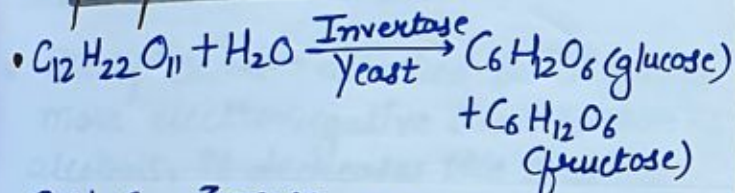 • C₁₂H₂₂O₁₁ + H₂O —Invertase/Yeast→ C₆H₁₂O₆ (glucose)
+ C₆H₁₂O₆
(fructose)